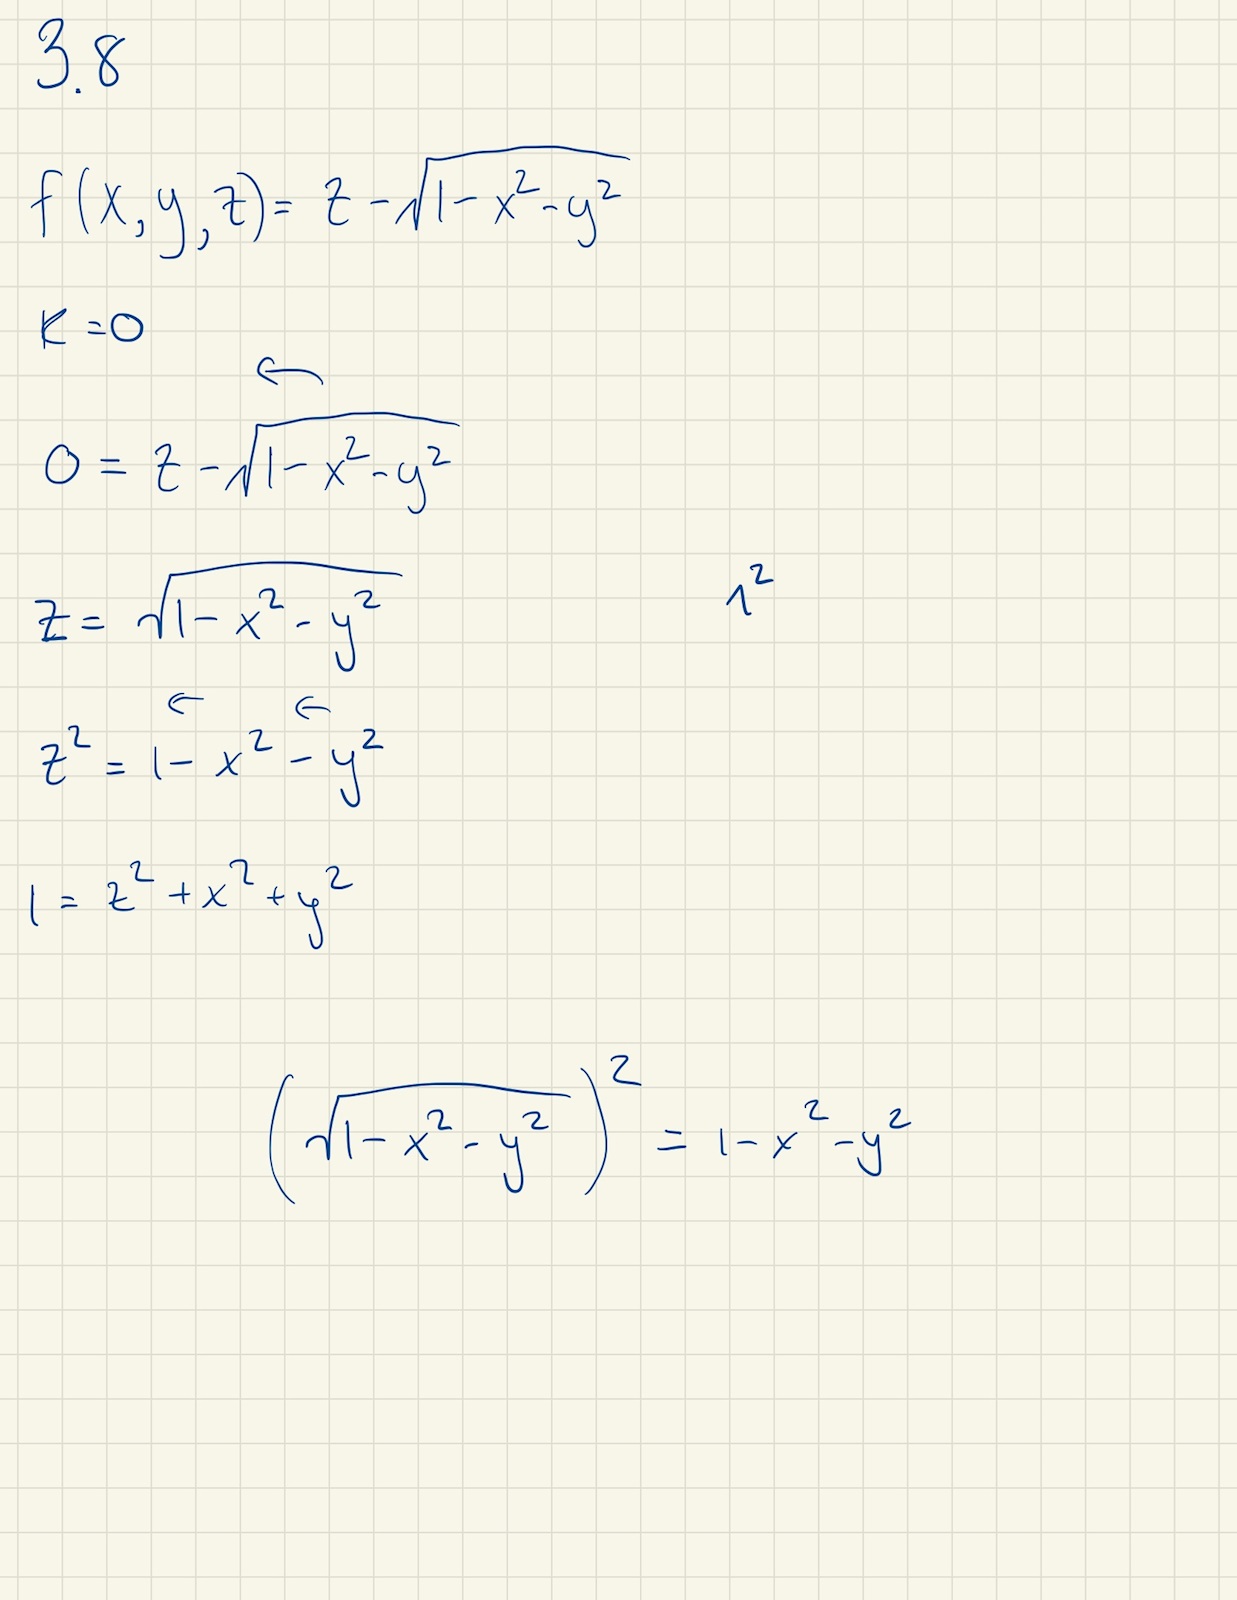 3.8
f(x,y,z) = z - √(1 - x² - y²)
K = 0
←
0 = z - √(1 - x² - y²)
z = √(1 - x² - y²)
1²
← ←
z² = 1 - x² - y²
1 = z² + x² + y²
(√(1 - x² - y²))² = 1 - x² - y²